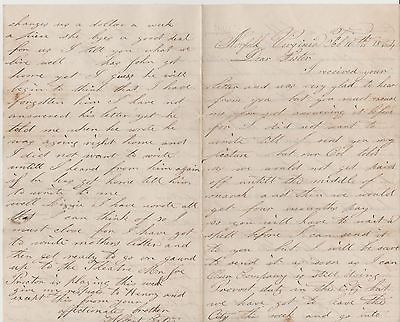 Norfolk Virginia Feb 10th 1864
Dear Sister
I received your
letter and was very glad to hear
from you but you must excuse
me for not answering it before
for I did not want to
write till I sent you my
picture but our Col told
us we would not get paid
off untill the middle of
march and then we would
get four months pay
so you will have to wait a
spell before I can send it
to you but I will be sure
to send it as soon as I can
Our Company is still doing
Provost duty in the City but
we have got to leave the
City this week and go into
changes us a dollar a week
a piece she does a good deal
for us I tell you what we
live well has John got
home yet I guess he will
begin to think that I have
forgotten him I have not
answered his letter yet he
told me when he wrote he
was going right home and
I did not want to write
untill I heard from him again
if he has got home tell him
to write to me
well Lizzie I have wrote all
I can think of so I
must close for I have got
to write mothers letter and
then get ready to go on guard
up to the Theatre Mr
Proctor is playing this week
give my respects to Henry and
except this from your
affectionate brother